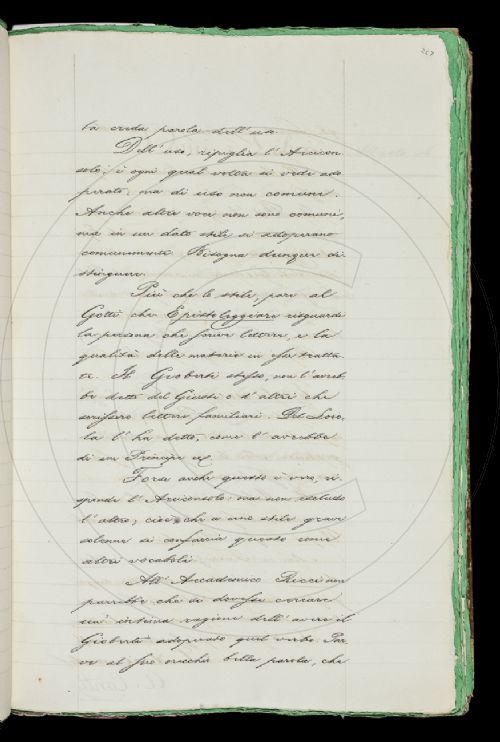 207
la creda parola dell'uso.
Dell'uso, ripiglia l'Arcicon-
solo, è ogni qual volta si vede ado-
perato; ma di uso non comune.
Anche altre voci non sono comuni,
ma in un dato stile si adoperano
comunemente. Bisogna dunque di-
stinguere.
Più che lo stile, pare al
Gotti che Epistoleggiare riguardi
la persona che scrive lettere, e la
qualità delle materie in esse tratta-
te. Il Gioberti stesso, non l'avreb-
be detto del Giusti o d'altri che
scrissero lettere familiari. Del Loio-
la l'ha detto, come l'avrebbe
di un Principe
Forse anche questo è vero, ri-
sponde l'Arciconsolo: ma non esclude
l'altro; cioè che a uno stile grave
solenne si confaccia questo come
altri vocaboli.
All'Accademico Ricci non
parrebbe che si dovesse cercare
un'intima ragione dell'avere il
Gioberti adoperato quel verbo. Par-
ve al suo orecchio bella parola, che